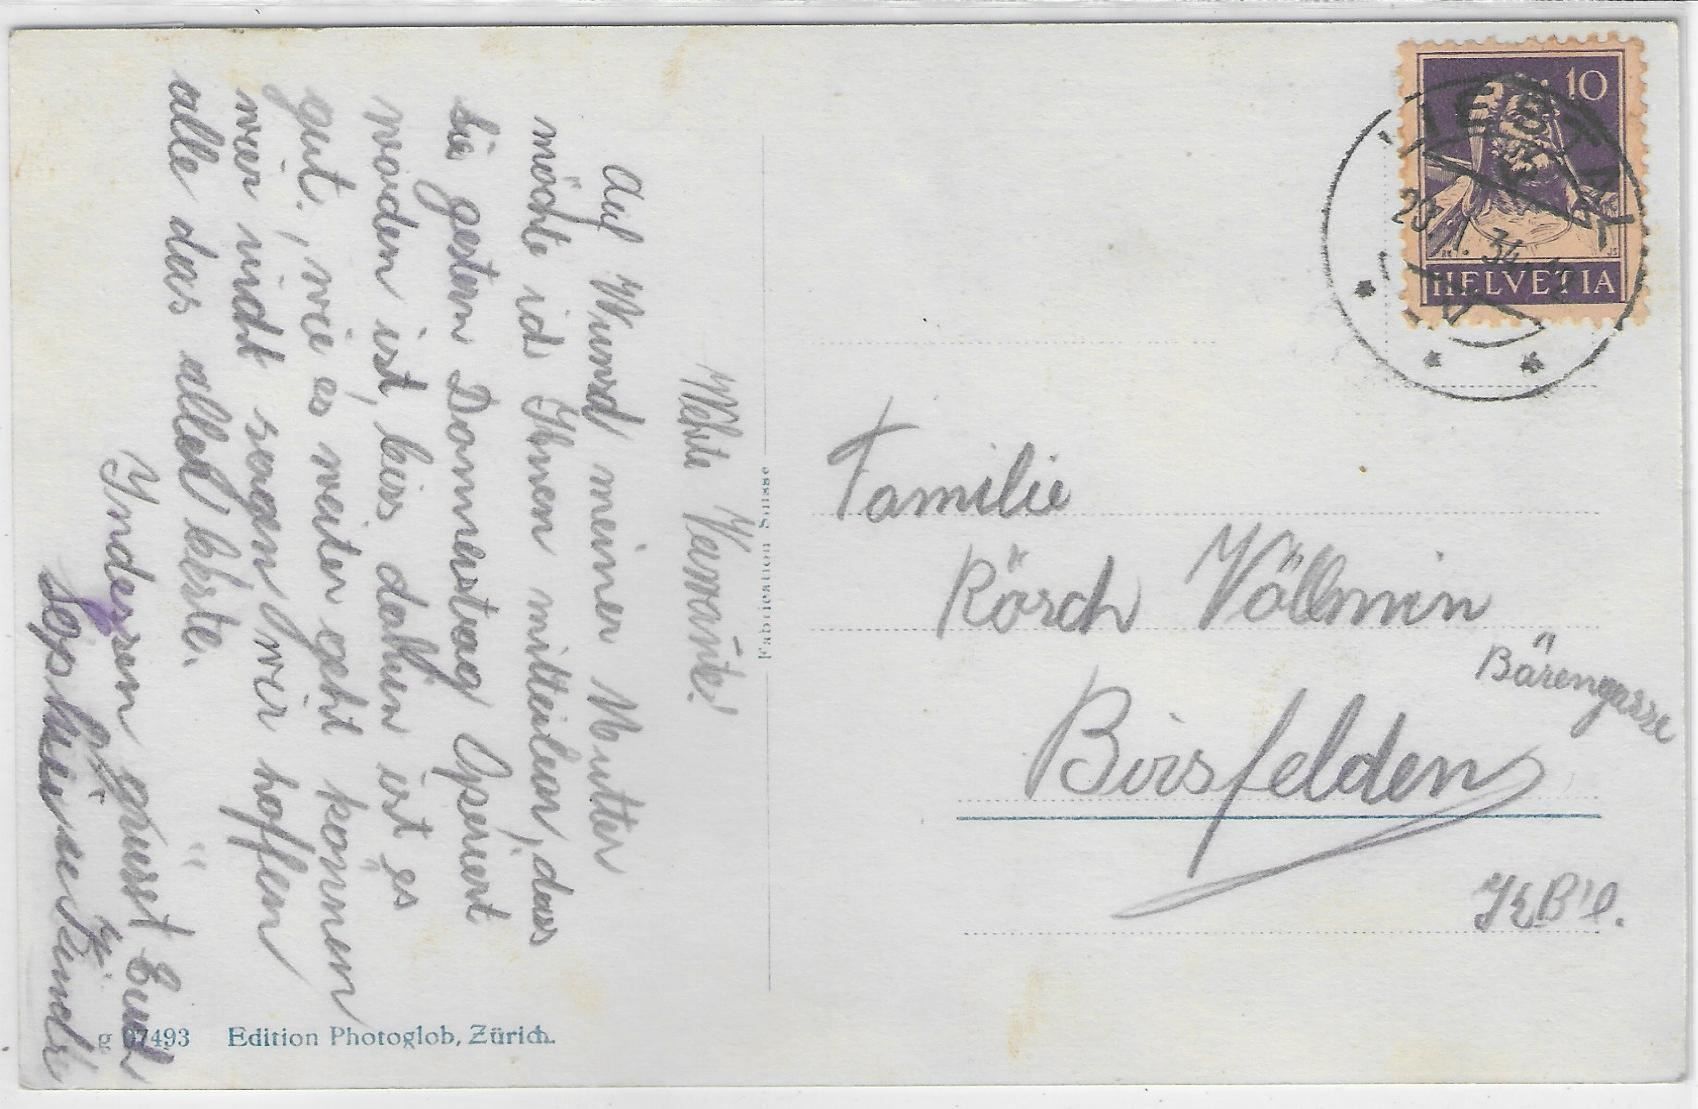 Werte Verwante!
Auf Wunsd meiner Mutter
möchte id Ihnen mitteilen, dass
sie gestern Donnerstag Operiert
worden ist, biss dahin ist es
gut, wie es weiter geht können
wier nidt sagen, wier hoffen
alle das aller beste.
Yndessen grüsst Eud
Fabrication Suisse
g 07493 Edition Photoglob, Zürich.
10
HELVETIA
LIESTAL
34
Familie
Rösch Völlmin
Bärengasse
Birsfelden